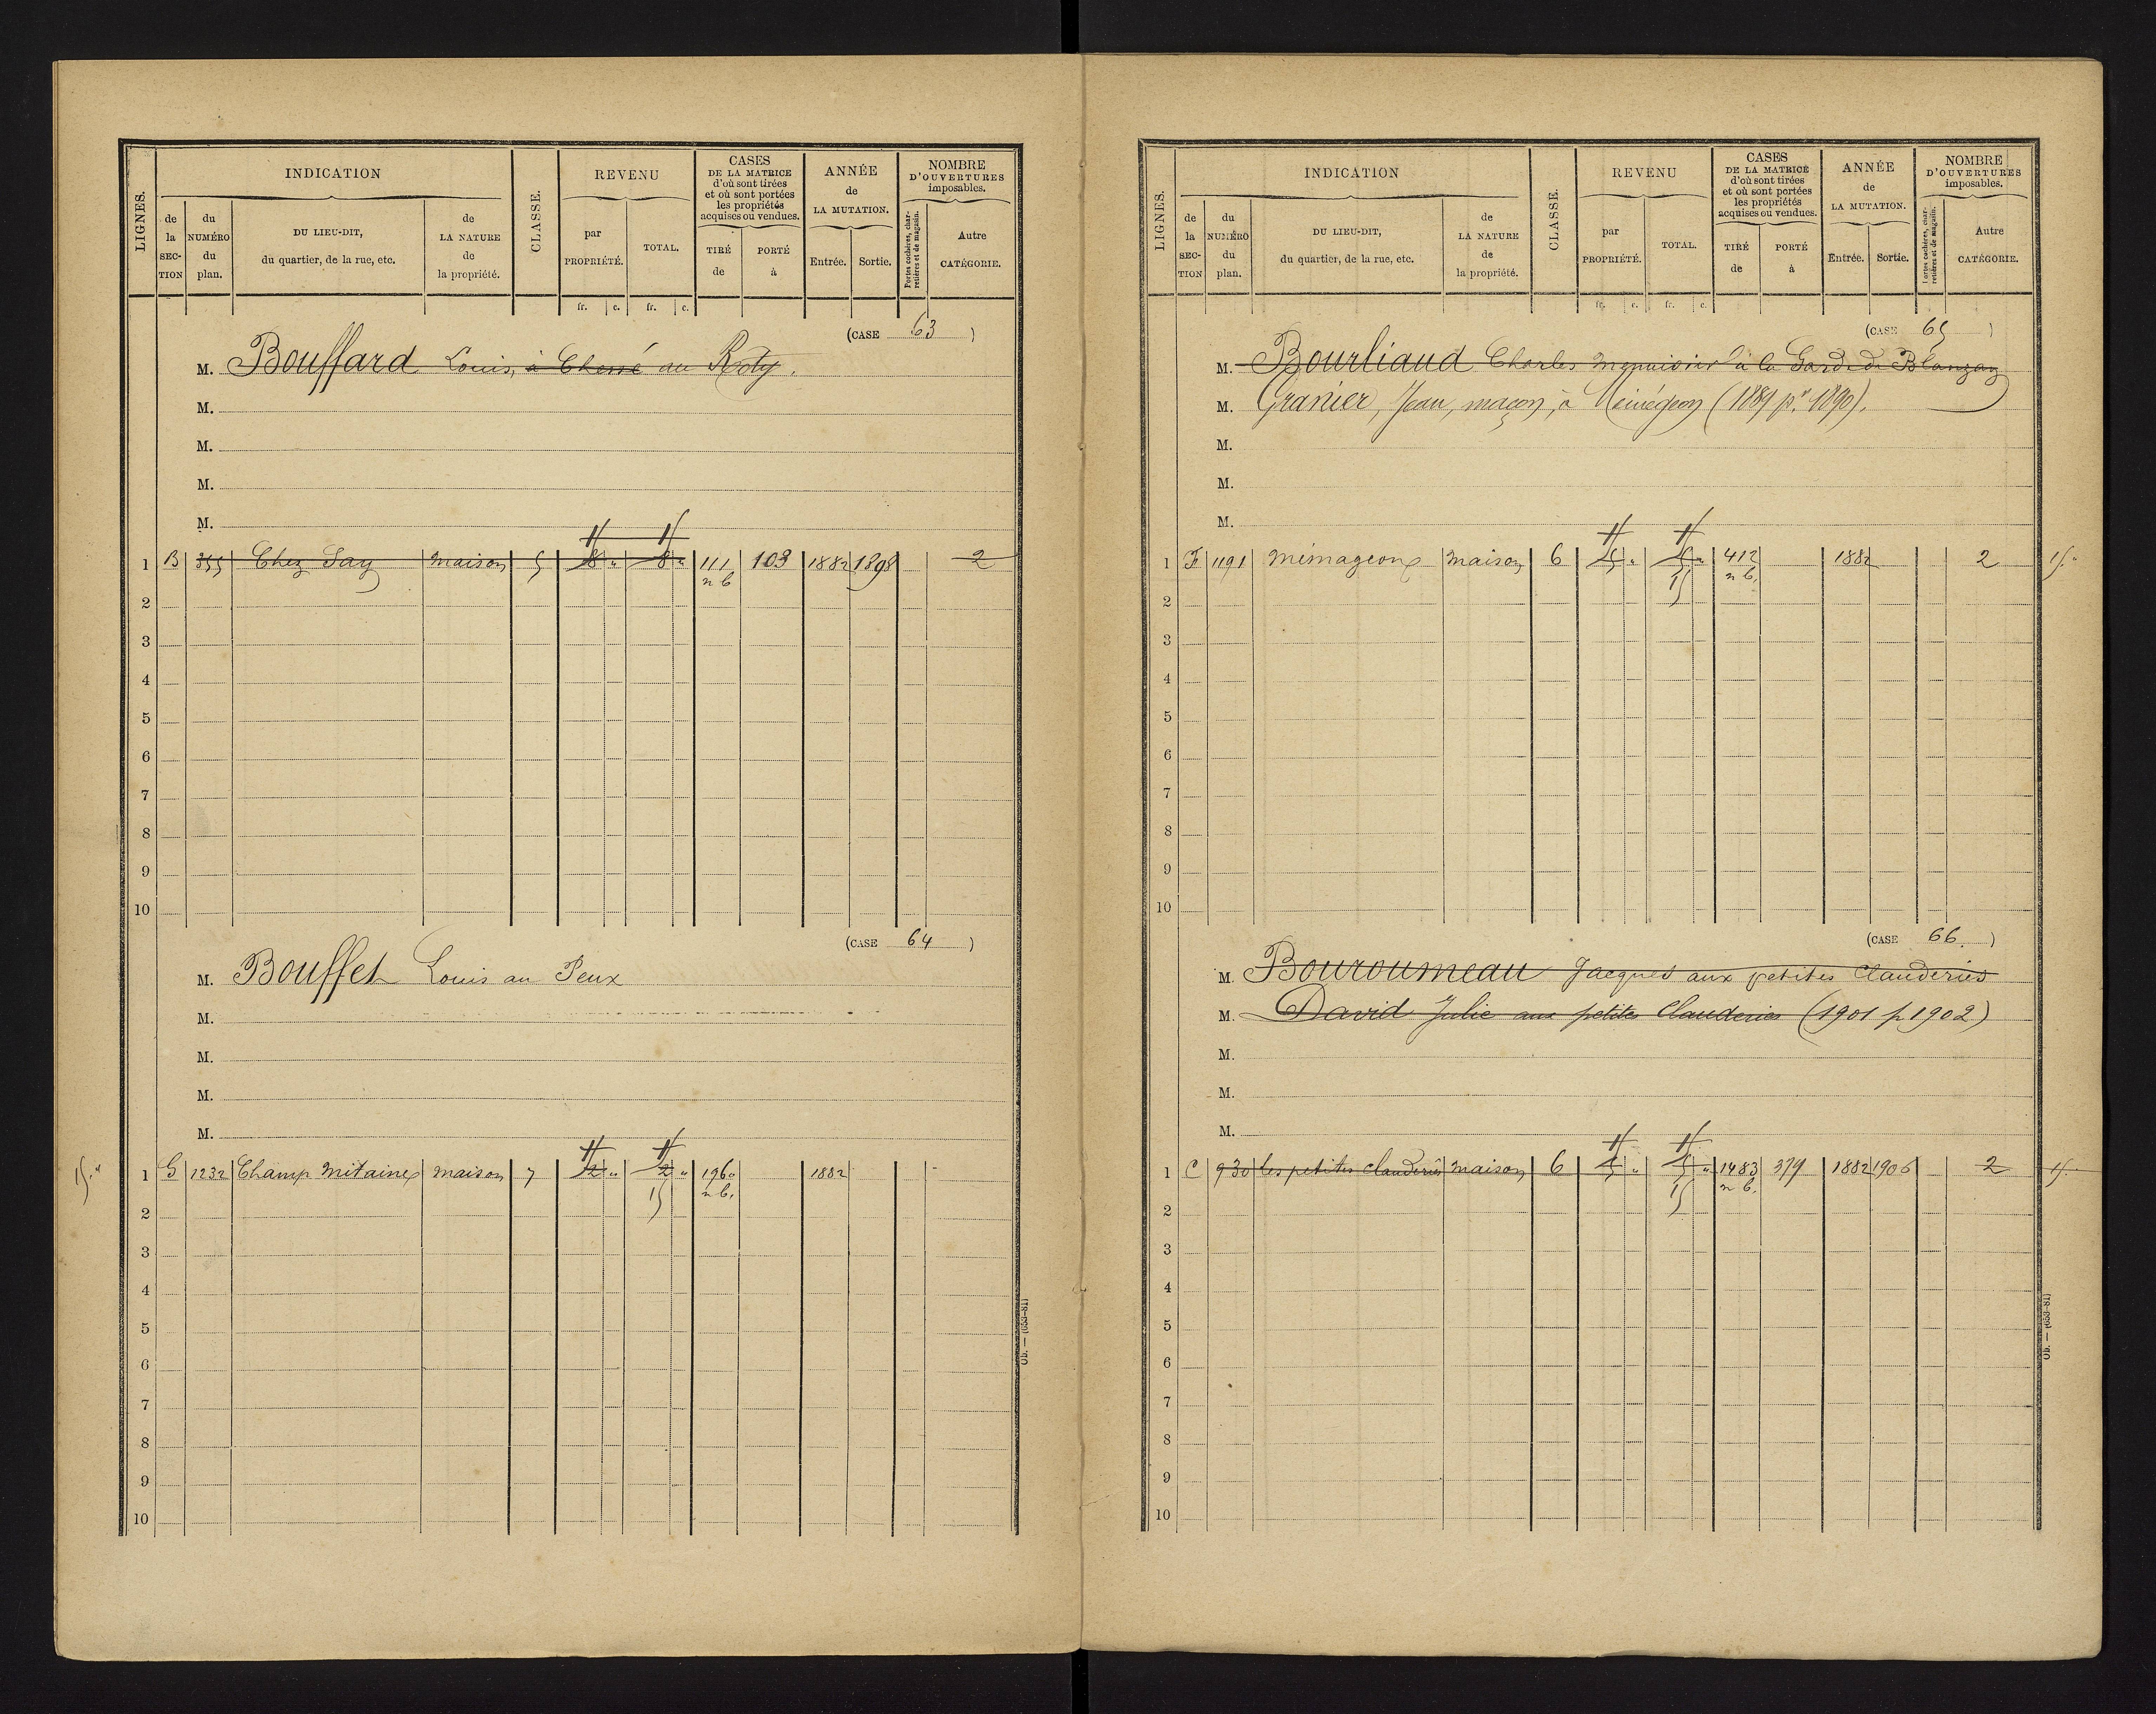 LIGNES. INDICATION CLASSE. REVENU CASES DE LA MATRICE d'où sont tirées et où sont portées les propriétés acquises ou vendues. ANNÉE de LA MUTATION. NOMBRE D'OUVERTURES imposables.
de la SECTION du NUMÉRO du plan. DU LIEU-DIT, du quartier, de la rue, etc. de LA NATURE de la propriété. par PROPRIÉTÉ. TOTAL. TIRÉ de PORTÉ à Entrée. Sortie. Portes cochères, charretières et de magasin. Autre CATÉGORIE.
fr. c. fr. c.
(CASE 63)
M. Bouffard Louis, à Chessé au Roty.
M.
M.
M.
M.
1 B 355 Chez Say maison 5 8 " 8 " 111 103 1882 1898 2
n b
2
3
4
5
6
7
8
9
10
(CASE 64)
M. Bouffet Louis au Peux
M.
M.
M.
M.
15. " 1 G 1232 Champ mitaine maison 7 2 " 2 " 1960 1882
15 n b.
2
3
4
5
6
7
8
9
10
Ob. — (653-81)
LIGNES. INDICATION CLASSE. REVENU CASES DE LA MATRICE d'où sont tirées et où sont portées les propriétés acquises ou vendues. ANNÉE de LA MUTATION. NOMBRE D'OUVERTURES imposables.
de la SECTION du NUMÉRO du plan. DU LIEU-DIT, du quartier, de la rue, etc. de LA NATURE de la propriété. par PROPRIÉTÉ. TOTAL. TIRÉ de PORTÉ à Entrée. Sortie. Portes cochères, charretières et de magasin. Autre CATÉGORIE.
fr. c. fr. c.
(CASE 65)
M. Bourliaud Charles menuisier à la Garde de Blanzay
M. Granier, Jean, maçon, à (1889 pr. 1890).
M.
M.
M.
1 F 1191 mémageons maison 6 5 " 5 " 412 1882 2 15. "
15 n b.
2
3
4
5
6
7
8
9
10
(CASE 66.)
M. Bouroumeau Jacques aux petites Clauderies
M. David Julie aux petites Clauderies (1901 p 1902)
M.
M.
M.
1 C 930 les petites clauderies maison 6 5 " 5 " 1483 379 1882 1906 2 15.
15 n b.
2
3
4
5
6
7
8
9
10
Ob. — (653-81)